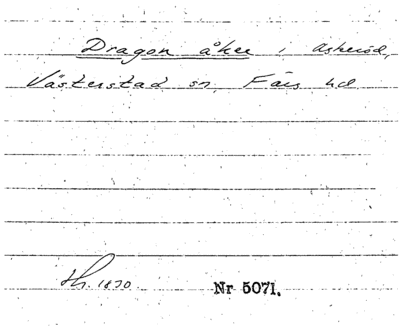 Dragon åker i Askeröd,
Västerstad sn, Färs hd
Hh. 1870
Nr 5071.